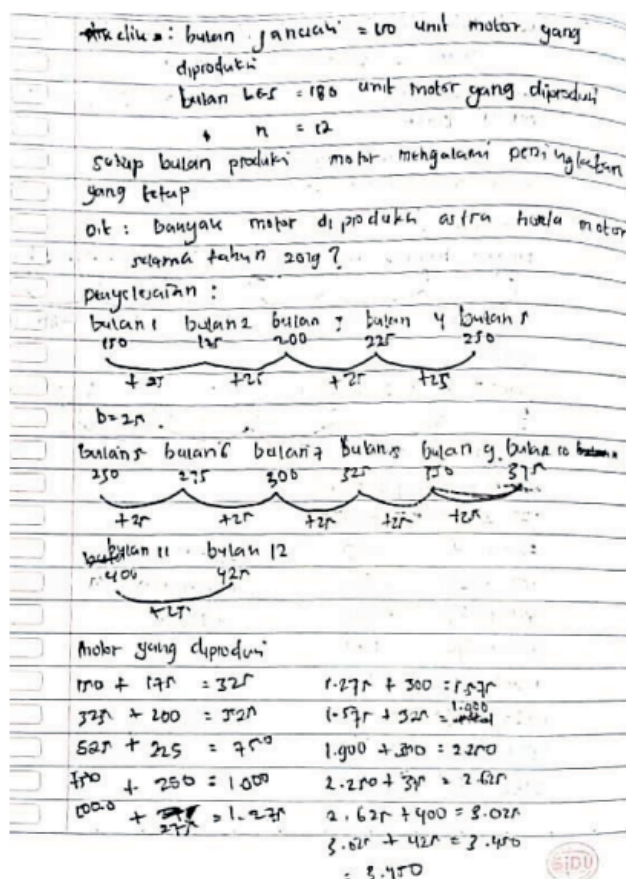 : bulan januari = unit motor yang
diproduksi
bulan = 180 unit motor yang diproduksi
n = 12
setiap bulan produksi motor mengalami peningkatan
yang tetap
Dit : banyak motor diproduksi astra honda motor
selama tahun 2019 ?
penyelesaian :
bulan 1 bulan 2 bulan 3 bulan 4 bulan 5
150 200 225 250
+25 +25 +25 +25
b = 25
bulan 5 bulan 6 bulan 7 bulan 8 bulan 9 bulan 10
250 275 300 325 350 375
+25 +25 +25 +25 +25
bulan 11 bulan 12
400 425
+25
motor yang diproduksi
150 + 175 = 325
325 + 200 = 525
525 + 225 = 750
750 + 250 = 1.000
1000 + 275 = 1.275
1.275 + 300 = 1.575
1.575 + 325 = 1.900
1.900 + 350 = 2.250
2.250 + 375 = 2.625
2.625 + 400 = 3.025
3.025 + 425 = 3.450
= 3.450
SIDU